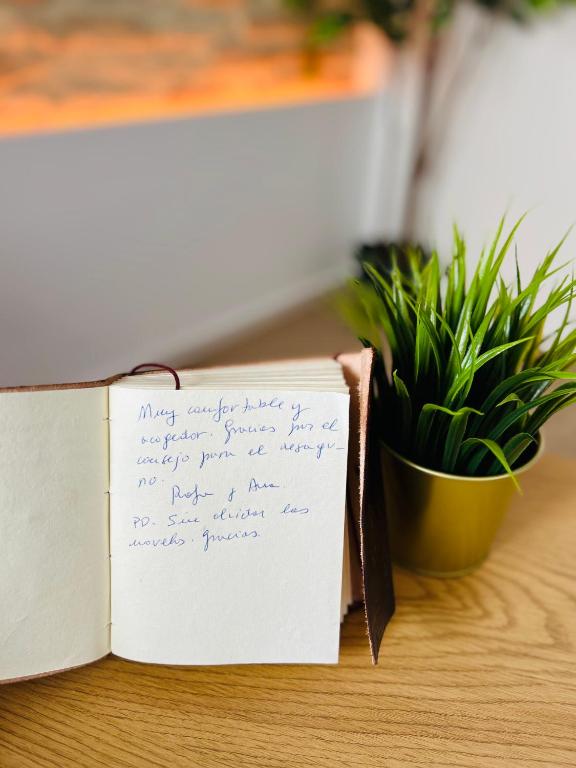 Muy comfortable y
acogedor. Gracias por el
consejo para el desayu-
no.
Rafa y Ana.
PD. Sin olvidar las
novelas. Gracias.